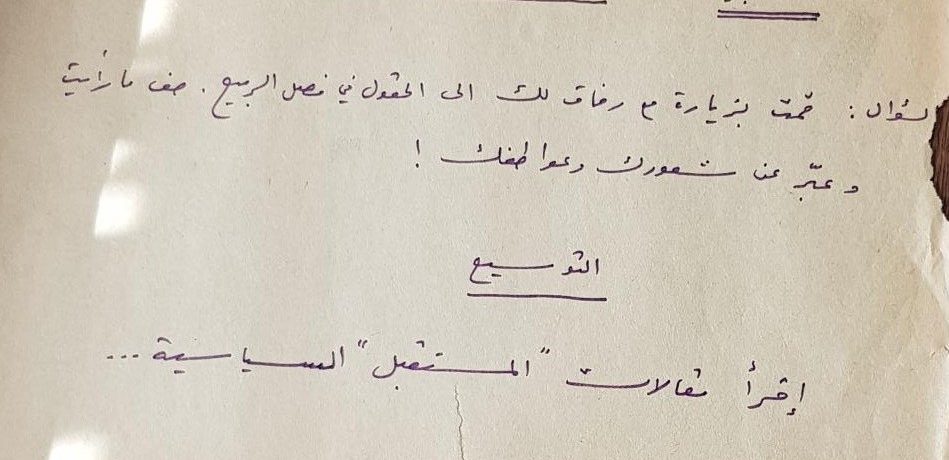 لسؤال : قمت بزيارة مع رفاق لك الى الحقول في فصل الربيع . صف ما رأيت
وعبّر عن شعورك وعواطفك !
التوسيع
إقرأ مقالات "المستقبل" السياسية ...